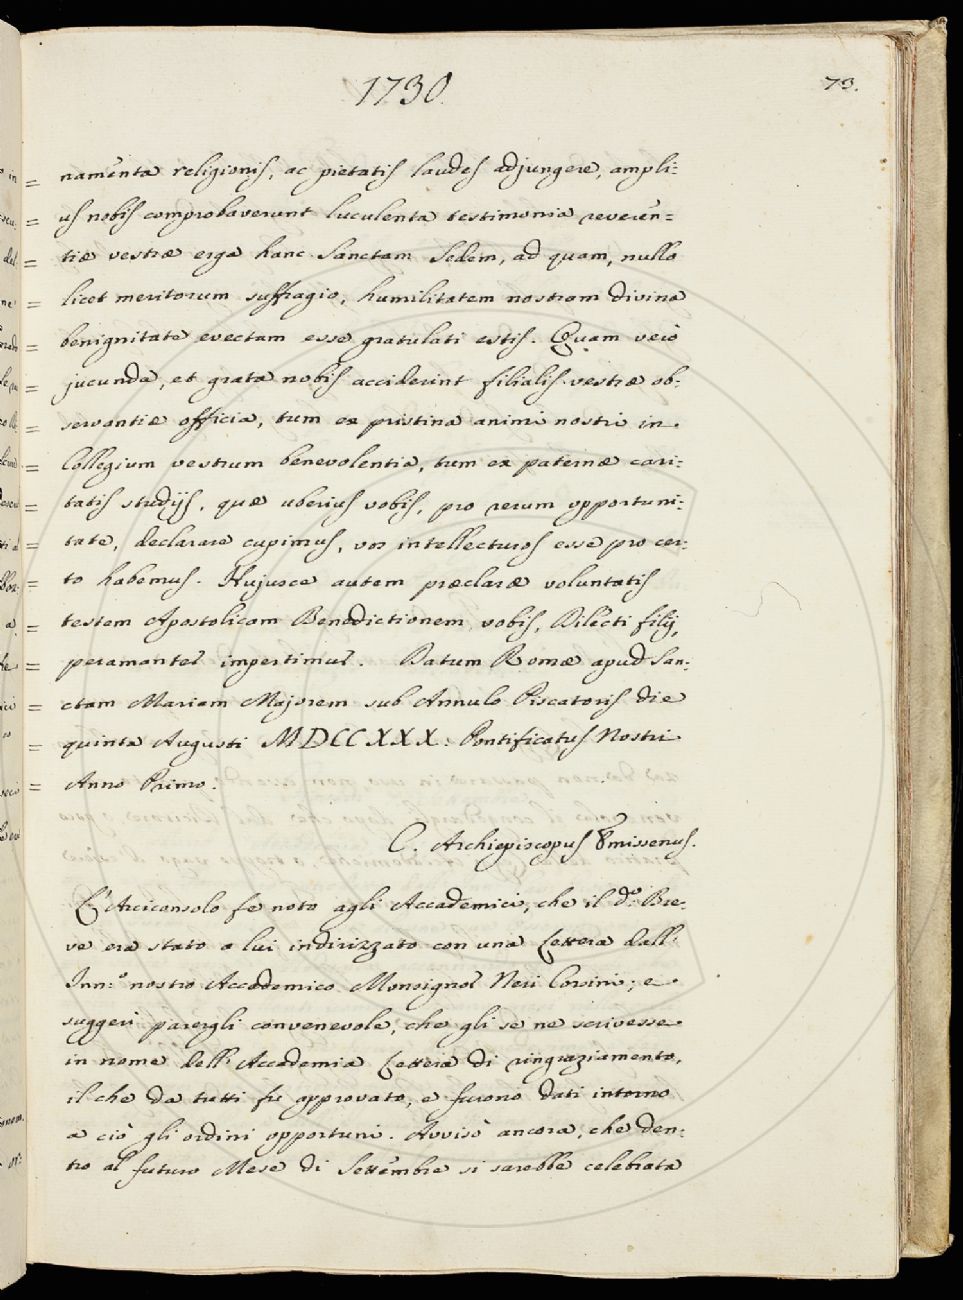 1730.
73.
= namenta religionis, ac pietatis laudes adjungere, ampli:
= us nobis comprobaverunt luculenta testimonia reveren=
= tiæ vestræ erga hanc Sanctam Sedem, ad quam, nullo
= licet meritorum suffragio, humilitatem nostram divina
= benignitate evectam esse gratulati estis. Quam verò
= jucunda, et grata nobis acciderint filialis vestræ ob:
= servantiæ officia, tum ex pristina animi nostri in
= Collegium vestrum benevolentia, tum ex paternæ cari:
= tatis studijs, quæ uberius vobis, pro rerum opportuni:
= tate, declarare cupimus, vos intellecturos esse pro cer:
= to habemus. Hujusce autem præclaræ voluntatis
= testem Apostolicam Benedictionem vobis, Dilecti filij,
= peramanter impertimur. Datum Romæ apud San:
= ctam Mariam Majorem sub Annulo Piscatoris die
= quinta Augusti MDCCXXX. Pontificatus Nostri
= Anno Primo.
C. Archiepiscopus Emissenus.
L'Arciconsolo fe noto agli Accademici, che il d.º Bre:
ve era stato a lui indirizzato con una Lettera dall'
Inn.º nostro Accademico Monsignor Neri Corsini; e
suggerì parergli convenevole, che gli se ne scrivesse
in nome dell' Accademia Lettera di ringraziamento,
il che da tutti fu approvato, e furono dati intorno
a ciò gli ordini opportuni. Avvisò ancora, che den:
tro al futuro Mese di Settembre si sarebbe celebrata